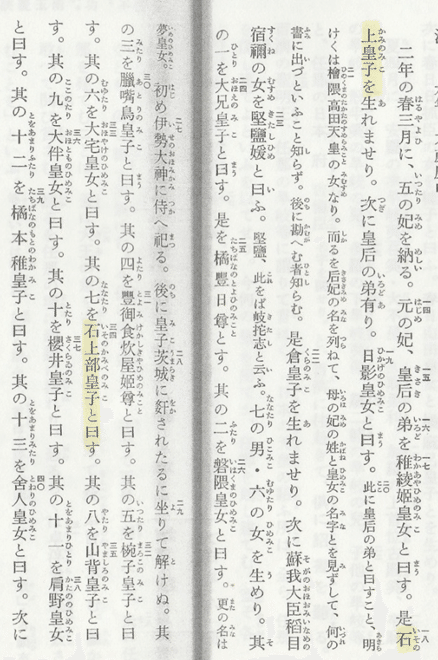 二年の春三月に、五の妃を納る。元の妃、皇后の弟を稚綾姫皇女と曰す。是石
上皇子を生れませり。次に皇后の弟有り。日影皇女と曰す。此に皇后の弟と曰すこと、明
けくは檜隈高田天皇の女なり。而るを后妃の名を列ねて、母の妃の姓と皇女の名字とを見ずして、何の
書に出づといふこと知らず。後に勘へむ者知らむ。是倉皇子を生れませり。次に蘇我大臣稲目
宿禰の女を堅鹽媛と曰ふ。堅鹽、此をば岐拕志と云ふ。七の男・六の女を生めり。其
の一を大兄皇子と曰す。是を橘豐日尊とす。其の二を磐隈皇女と曰す。更の名は
夢皇女。初め伊勢大神に侍へ祀る。後に皇子茨城に姧されたるに坐りて解けぬ。其
の三を臘嘴鳥皇子と曰す。其の四を豐御食炊屋姫尊と曰す。其の五を椀子皇子と曰
す。其の六を大宅皇女と曰す。其の七を石上部皇子と曰す。其の八を山背皇子と曰
す。其の九を大伴皇女と曰す。其の十を櫻井皇子と曰す。其の十一を肩野皇女
と曰す。其の十二を橘本稚皇子と曰す。其の十三を舍人皇女と曰す。次に